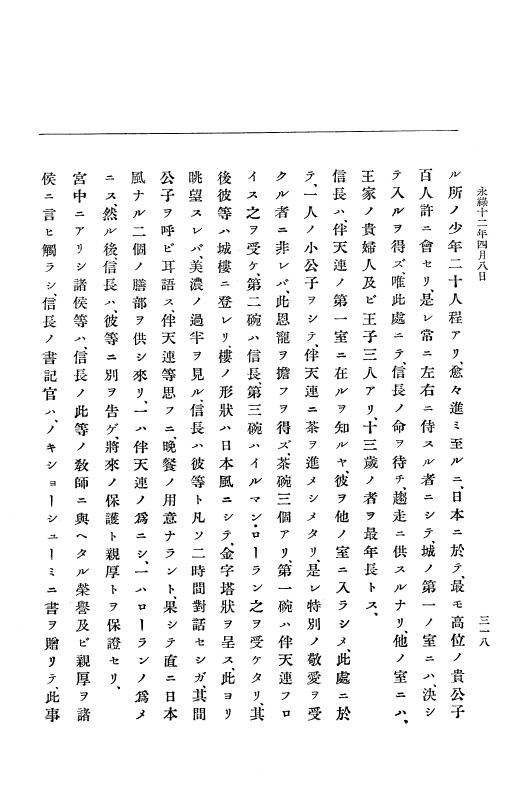 永祿十二年四月八日
三一八
ル所ノ少年二十人程アリ、愈々進ミ至ルニ、日本ニ於テ、最モ高位ノ貴公子
百人許ニ會セリ、是レ常ニ左右ニ侍スル者ニシテ、城ノ第一ノ室ニハ、決シ
テ入ルヲ得ズ、唯此處ニテ、信長ノ命ヲ待チ、趨走ニ供スルナリ、他ノ室ニハ、
王家ノ貴婦人及ビ王子三人アリ、十三歳ノ者ヲ最年長トス、
信長ハ、伴天連ノ第一室ニ在ルヲ知ルヤ、彼ヲ他ノ室ニ入ラシメ、此處ニ於
テ、一人ノ小公子ヲシテ、伴天連ニ茶ヲ進メシメタリ、是レ特別ノ敬愛ヲ受
クル者ニ非レバ、此恩寵ヲ擔フヲ得ズ、茶碗三個アリ、第一碗ハ伴天連フロ
イス之ヲ受ケ、第二碗ハ信長、第三碗ハイルマン・ローラン之ヲ受ケタリ、其
後彼等ハ城樓ニ登レリ、樓ノ形狀ハ日本風ニシテ、金字塔狀ヲ呈ス、此ヨリ
眺望スレバ、美濃ノ過半ヲ見ル、信長ハ彼等ト凡ソ二時間對話セシガ、其間
公子ヲ呼ビ耳語ス、伴天連等思フニ、晩餐ノ用意ナラント、果シテ直ニ日本
風ナル二個ノ膳部ヲ供シ來リ、一ハ伴天連ノ爲ニシ、一ハローランノ爲メ
ニス、然ル後信長ハ、彼等ニ別ヲ告ゲ、將來ノ保護ト親厚トヲ保證セリ、
宮中ニアリシ諸侯等ハ、信長ノ此等ノ敎師ニ與ヘタル榮譽及ビ親厚ヲ諸
侯ニ言ヒ觸ラシ、信長ノ書記官ハ、ノキショーシューミニ書ヲ贈リテ、此事